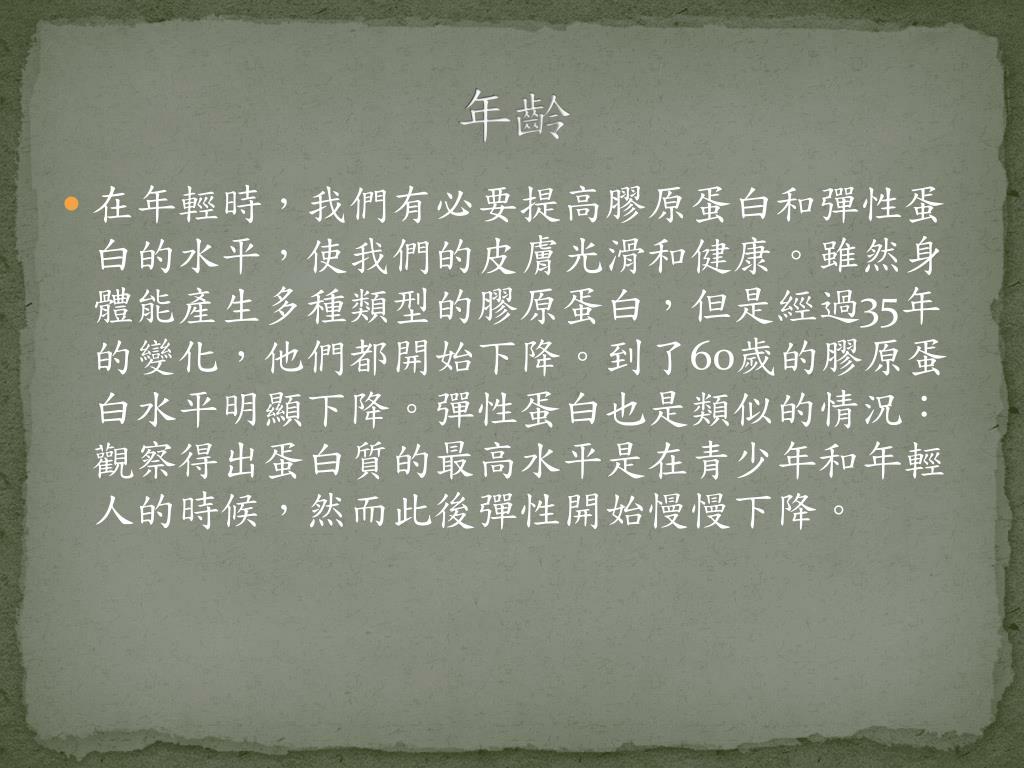 年齡
在年輕時，我們有必要提高膠原蛋白和彈性蛋
白的水平，使我們的皮膚光滑和健康。雖然身
體能產生多種類型的膠原蛋白，但是經過35年
的變化，他們都開始下降。到了60歲的膠原蛋
白水平明顯下降。彈性蛋白也是類似的情況：
觀察得出蛋白質的最高水平是在青少年和年輕
人的時候，然而此後彈性開始慢慢下降。